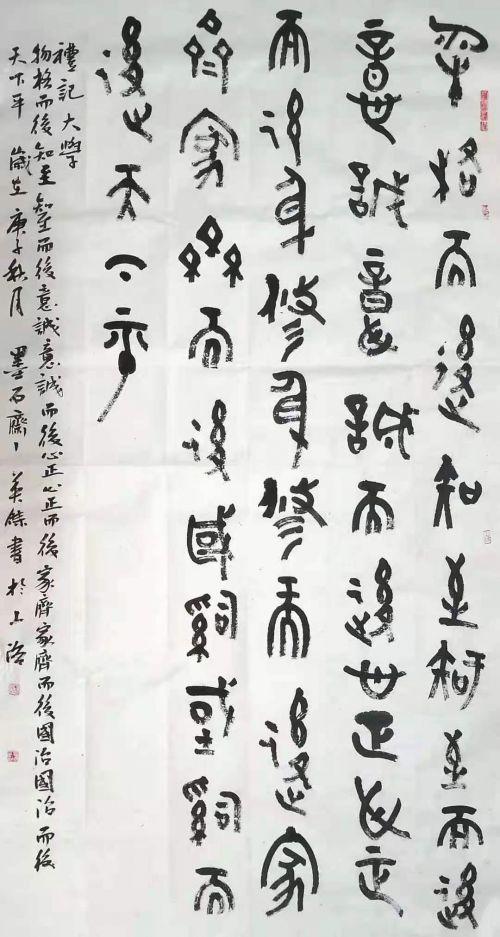 物格而後知至知至而後
意誠意誠而後心正心正
而後身修身修而後家
齊家齊而後國治國治而
後天下平
禮記大學
物格而後知至知至而後意誠意誠而後心正心正而後家齊家齊而後國治國治而後
天下平 歲在庚子秋月 墨石齋 英傑書於上洛